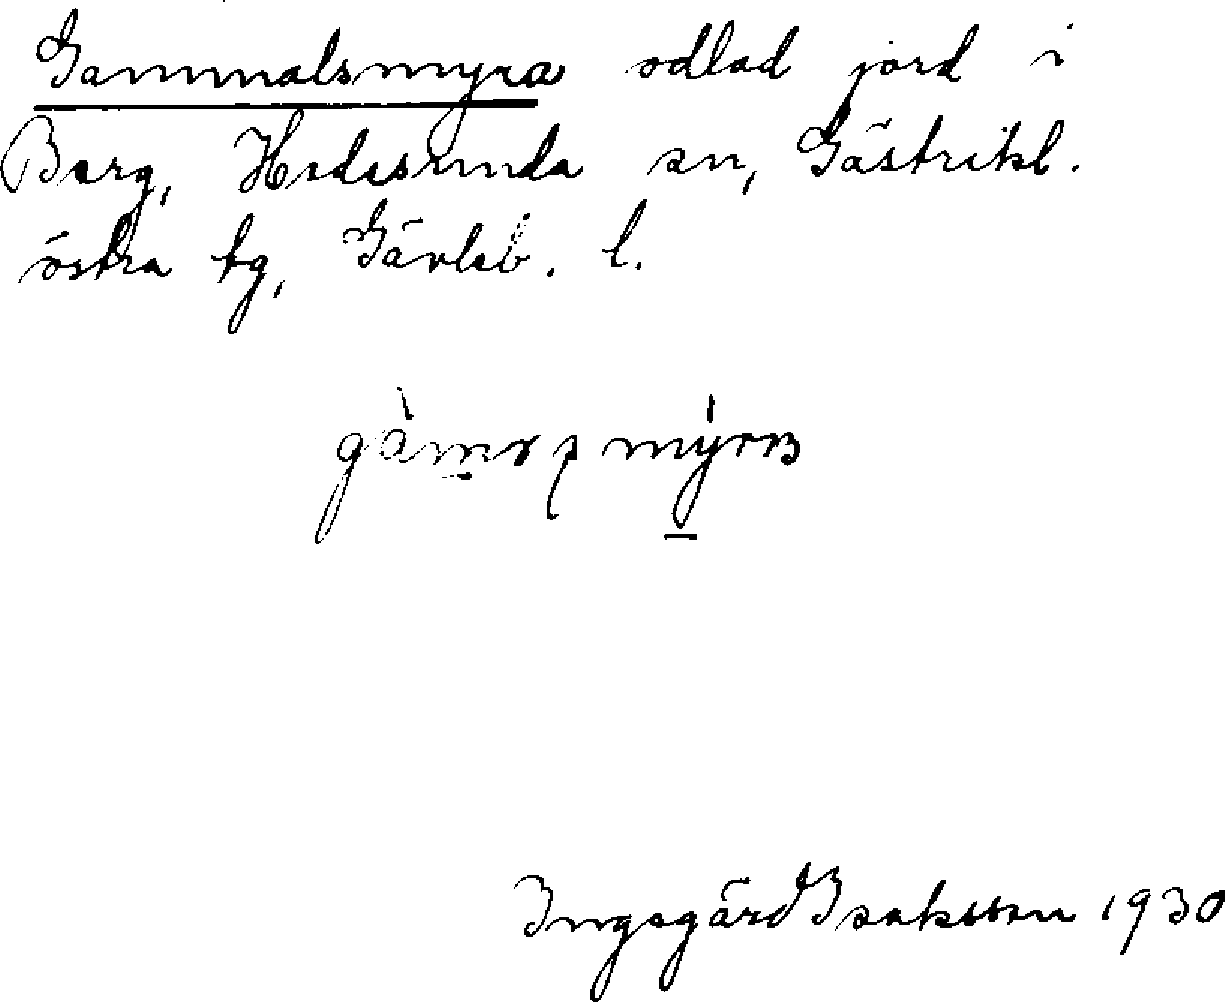 Gammalsmyra odlad jord i
Berg, Hedesunda sn, Gästrikl.
östra tg, Gävleb. l.
Ingegärd Isaksson 1930